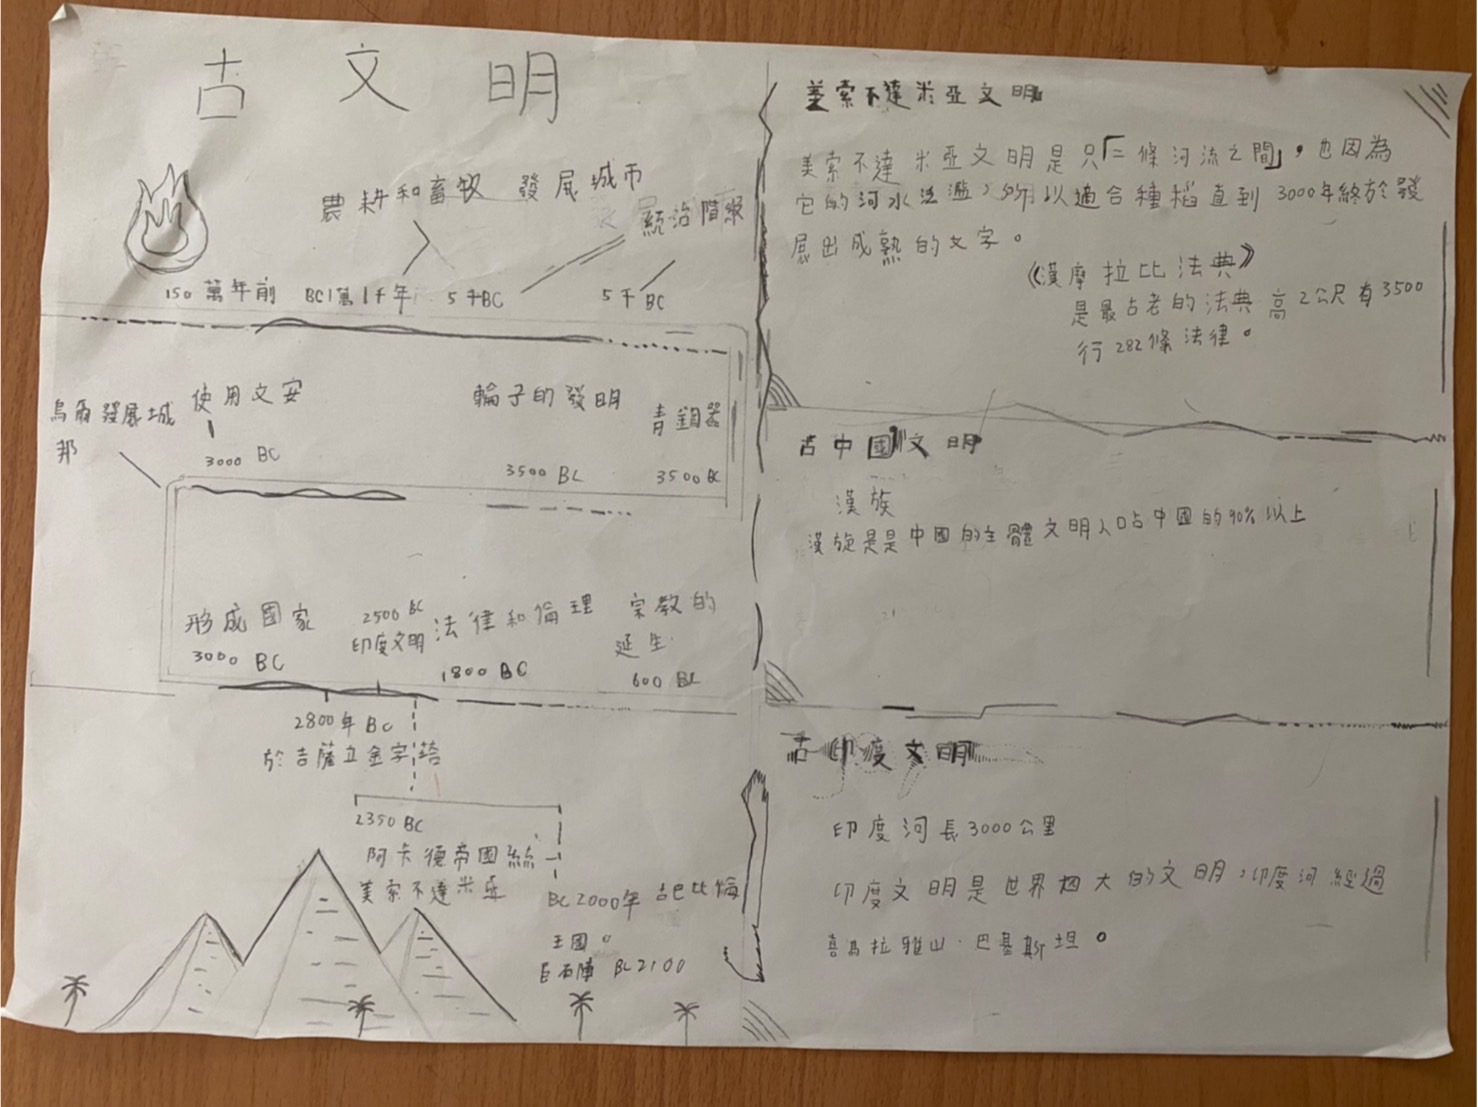 古文明
農耕和畜牧 發展城市
統治階級
150萬年前 BC1萬1千年 5千BC 5千BC
烏爾發展城
邦
使用文安
3000 BC
輪子的發明
3500 BC
青銅器
3500 BC
形成國家
3000 BC
2500 BC
印度文明
法律和倫理
1800 BC
宗教的
延生
600 BC
2800年BC
於吉薩立金字塔
2350 BC
阿卡德帝國
美索不達米亞
BC2000年 古巴比倫
王國。
巨石陣 BC2100
美索不達米亞文明
美索不達米亞文明是只「二條河流之間」,也因為
它的河水泛濫,所以適合種稻直到3000年終於發
展出成熟的文字。
《漢摩拉比法典》
是最古老的法典高2公尺有3500
行282條法律。
古中國文明
漢族
漢族是是中國的主體文明人口占中國的90%以上
古印度文明
印度河長3000公里
印度文明是世界四大的文明,印度河經過
喜馬拉雅山、巴基斯坦。